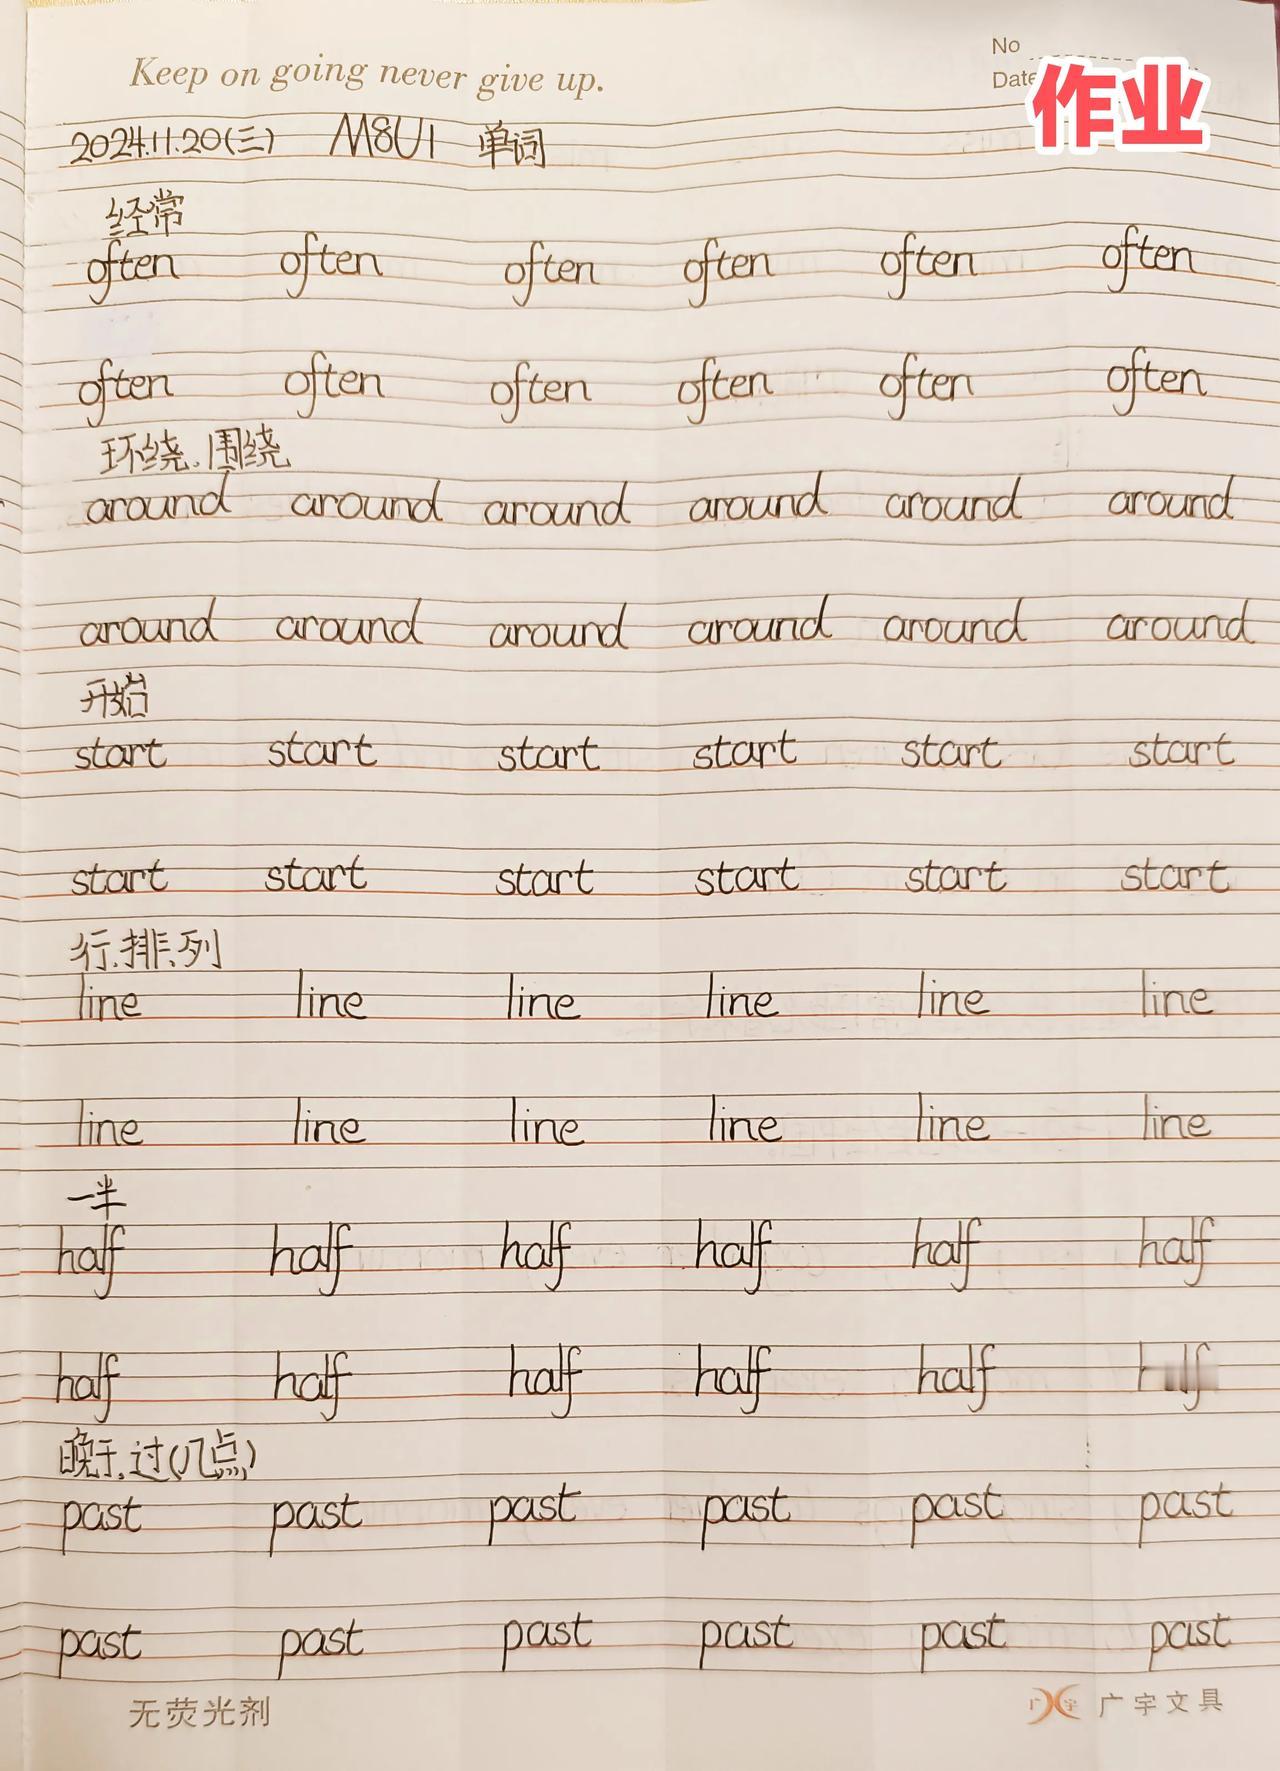 Keep on going never give up.
No
Date
作业
2024.11.20(三) M8U1 单词
经常
often often often often often often
often often often often often often
环绕、围绕
around around around around around around
around around around around around around
开始
start start start start start start
start start start start start start
行、排、列
line line line line line line
line line line line line line
一半
half half half half half half
half half half half half half
晚于、过(几点)
past past past past past past
past past past past past past
无荧光剂
广宇文具